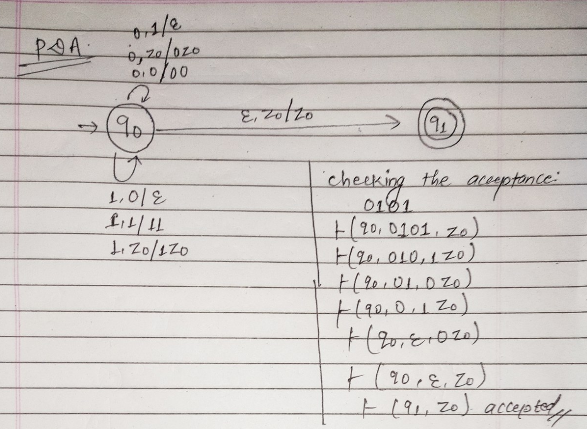 PDA.
0,1/ε
0,z0/0z0
0,0/00
q0
ε,z0/z0
q1
1,0/ε
1,1/11
1,z0/1z0
checking the acceptance:
0101
⊢(q0,0101,z0)
⊢(q0,010,1z0)
⊢(q0,01,0z0)
⊢(q0,0,1z0)
⊢(q0,ε,0z0)
⊢(q0,ε,z0)
⊢(q1,z0) accepted//